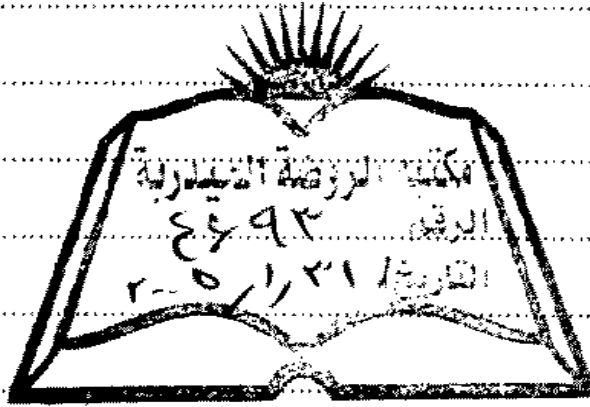 مكتبة الروضة الحيدرية
الرقم ٤٤٩٣
التاريخ / ٣١ / ١ / ٢٠٠٥